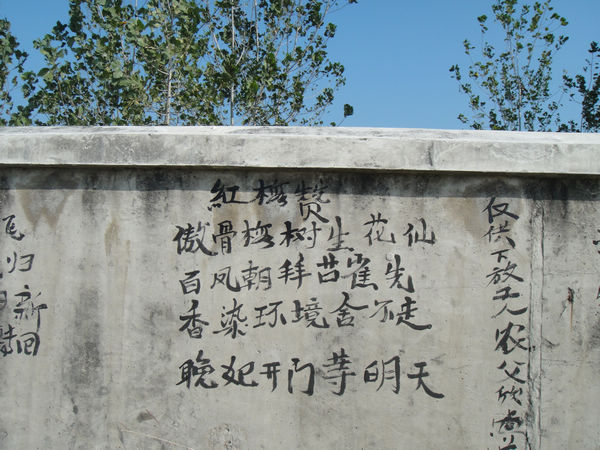 紅梅赞
傲骨梅树生花仙
百凤朝拜苔雀先
香染环境舍不走
晚妃开门等明天
仅供下放农父欣尝
尾归
新